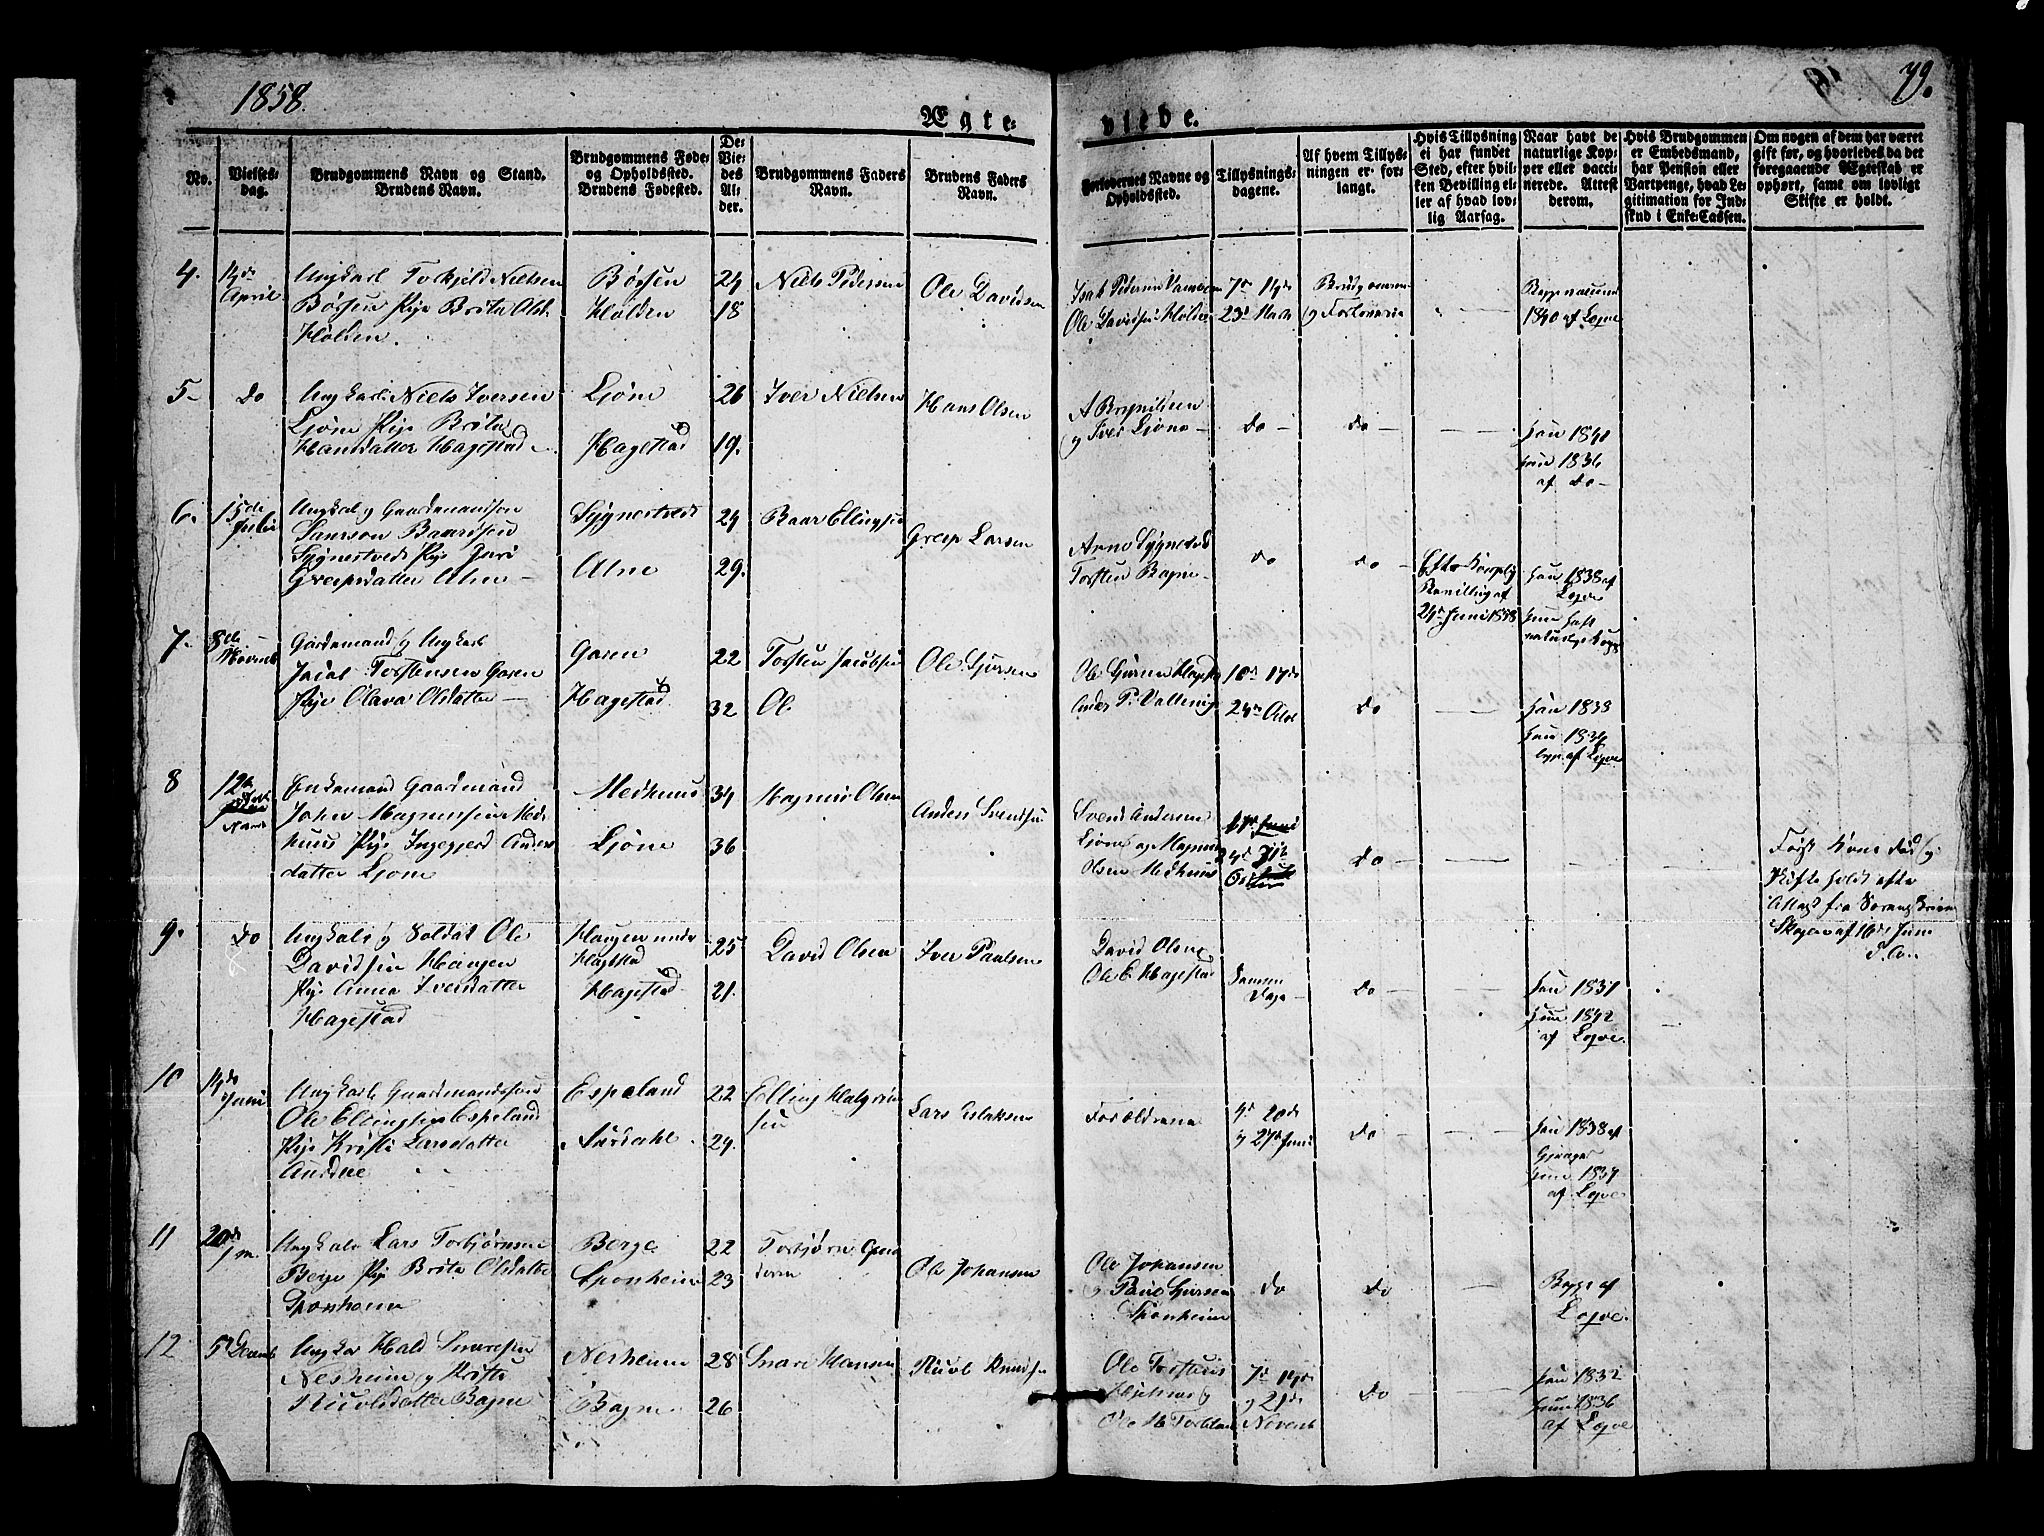 1858.
79.
Ægte-
viede.
No.
Vielses-
dag.
Brudgommens Navn og Stand.
Brudens Navn.
Brudgommens Føde-
og Opholdssted.
Brudens Fødested.
De
Vie-
des
Al-
der.
Brudgommens Faders
Navn.
Brudens Faders
Navn.
Forlovernes Navne og
Opholdssted.
Tillysnings-
dagene.
Af hvem Tillys-
ningen er for-
langt.
Hvis Tillysning
ei har fundet
Sted, efter hvil-
ken Bevilling el-
ler af hvad lov-
lig Aarsag.
Naar havt de
naturlige Kop-
per eller vacci-
nerede. Attest
derom.
Hvis Brudgommen
er Embedsmand,
har Pension eller
Vartpenge, hvad Le-
gitimation for Ind-
skud i Enke-Cassen.
Om nogen af dem har været
gift før, og hvorledes da det
foregaaende Ægteskab er
ophørt, samt om lovligt
Skifte er holdt.
4.
April
Ungkarl Torkjeld Nielsen
Børsen Pige Brita Olsd.
Holden.
Børsen
Holden
24
18
Niels Pedersen
Ole Davidsen
Isak Pedersen
Ole Davidsen Holden
7de 14de
23de Marts
Brudgommen
og Forloverne
1840 af Logve
5
do
Ungkarl Niels Iversen
Ljone Pige Brita
Hansdatter Hagestad
Ljone
Hagestad
26
19.
Iver Nielsen
Hans Olsen
A Brynilsen
og Iver Ljone
do
do
han 1840
hun 1836
af do
6.
15de
Julii
Ungkarl og Gaardmandssøn
Samson Baardsen
Sygnestvedt Pige Guri
Greipsdatter Alne
Sygnestvedt
Alne
24
29.
Baar Ellingsen
Greip Larsen
Arne Sygnestved
Torsten Bagne
do
do
Efter Kongelig
Bevilling af
24de Juni 1858
han 1838 af
Logve
hun havt
naturlige Kopper
7.
8de
Novemb
Gardmand og Ungkarl
Jacob Torstensen Garen
Pige Olava Olsdatter
Garen
Hagestad
22
32
Torsten Jacobsen
Ol
Ole Gjursen
Ole Gjursen Hagestad
10de 17de
24de Octbr
do
han 1833
hun 1836
af Logve
8
12te
Enkemand Gaardmand
John Magnussen Med-
huus Pige Ingegjerd Anders
datter Ljone
Medhuus
Ljone
34
36
Magnus Olsen
Anders Svendsen
Svend Andersen
Ljone og Magnus
Olsen Medhuus
17de Juni
24de
do
Første Kone død og
Skifte holdt efter
Attest fra Sorenskriver
Skogen af 16de Juni
9.
do
Ungkarl og Soldat Ole
Davidsen Haugen
Pige Anna Iversdatter
Hagestad
Haugen under
Hagestad
Hagestad
25
21.
David Olsen
Iver Paulsen
David Olsen
Ole E Hagestad
Samme
Dage
do
han 1837
hun 1842
af Logve
10
14de
Juni
Ungkarl Gaardmandssøn
Ole Ellingsen Espeland
Pige Kristi Larsdatter
Aurdal
Espeland
22
24.
Elling Halgrim
sen
Lars Aslaksen
Forældrene
20de
og 27de Juni
do
han 1838 af
hun 1837
af Logve
11
20de
Ungkarl Lars Torbjørnsen
Berge Pige Brita Olsdatter
Sponheim
Berge
Sponheim
22
23
Torbjørn
Ole Johansen
Ole Johansen
og Gjursen
Sponheim
do
do
Begge af
Logve
12
5 Decemb
Ungkar Hald Snaresen
Nesheim og Kristi
Nicolsdatter Bagne
Nesheim
Bagne
28
26
Snare Hansen
Nicol Knudsen
Ole Torstens
og
7de 14de
og 21de
Novemb
do
han 1832
hun 1836
af Logve